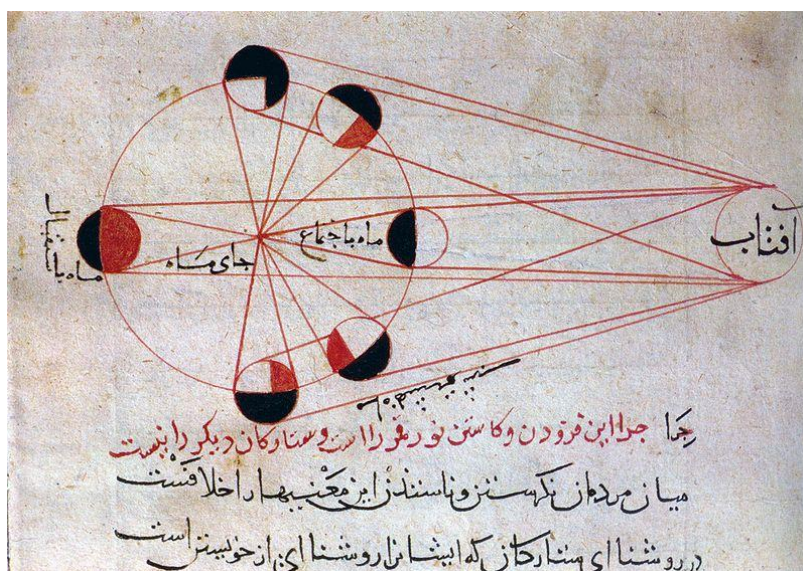 آفتاب
ماه باجتماع
جای ماه
ماه باستقبال
چرا این فزودن و کاستن نور قمر را است و ستارکان دیکر را نیست
میان مردمان نکرستن و ناسندن این معنیها را خلافست
در روشنای ستارکان که ایشانرا روشنا ای از خویشتن است